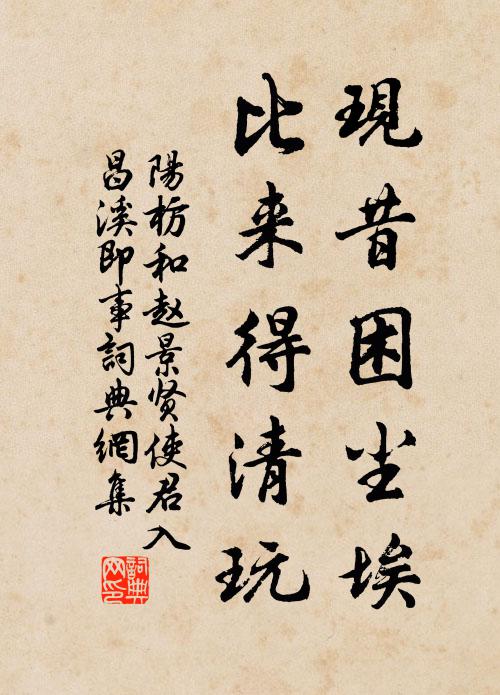 現昔困尘埃
比来得清玩
陽枋和赵景贤使君入
昌溪即事詞典網集
詞典
网印